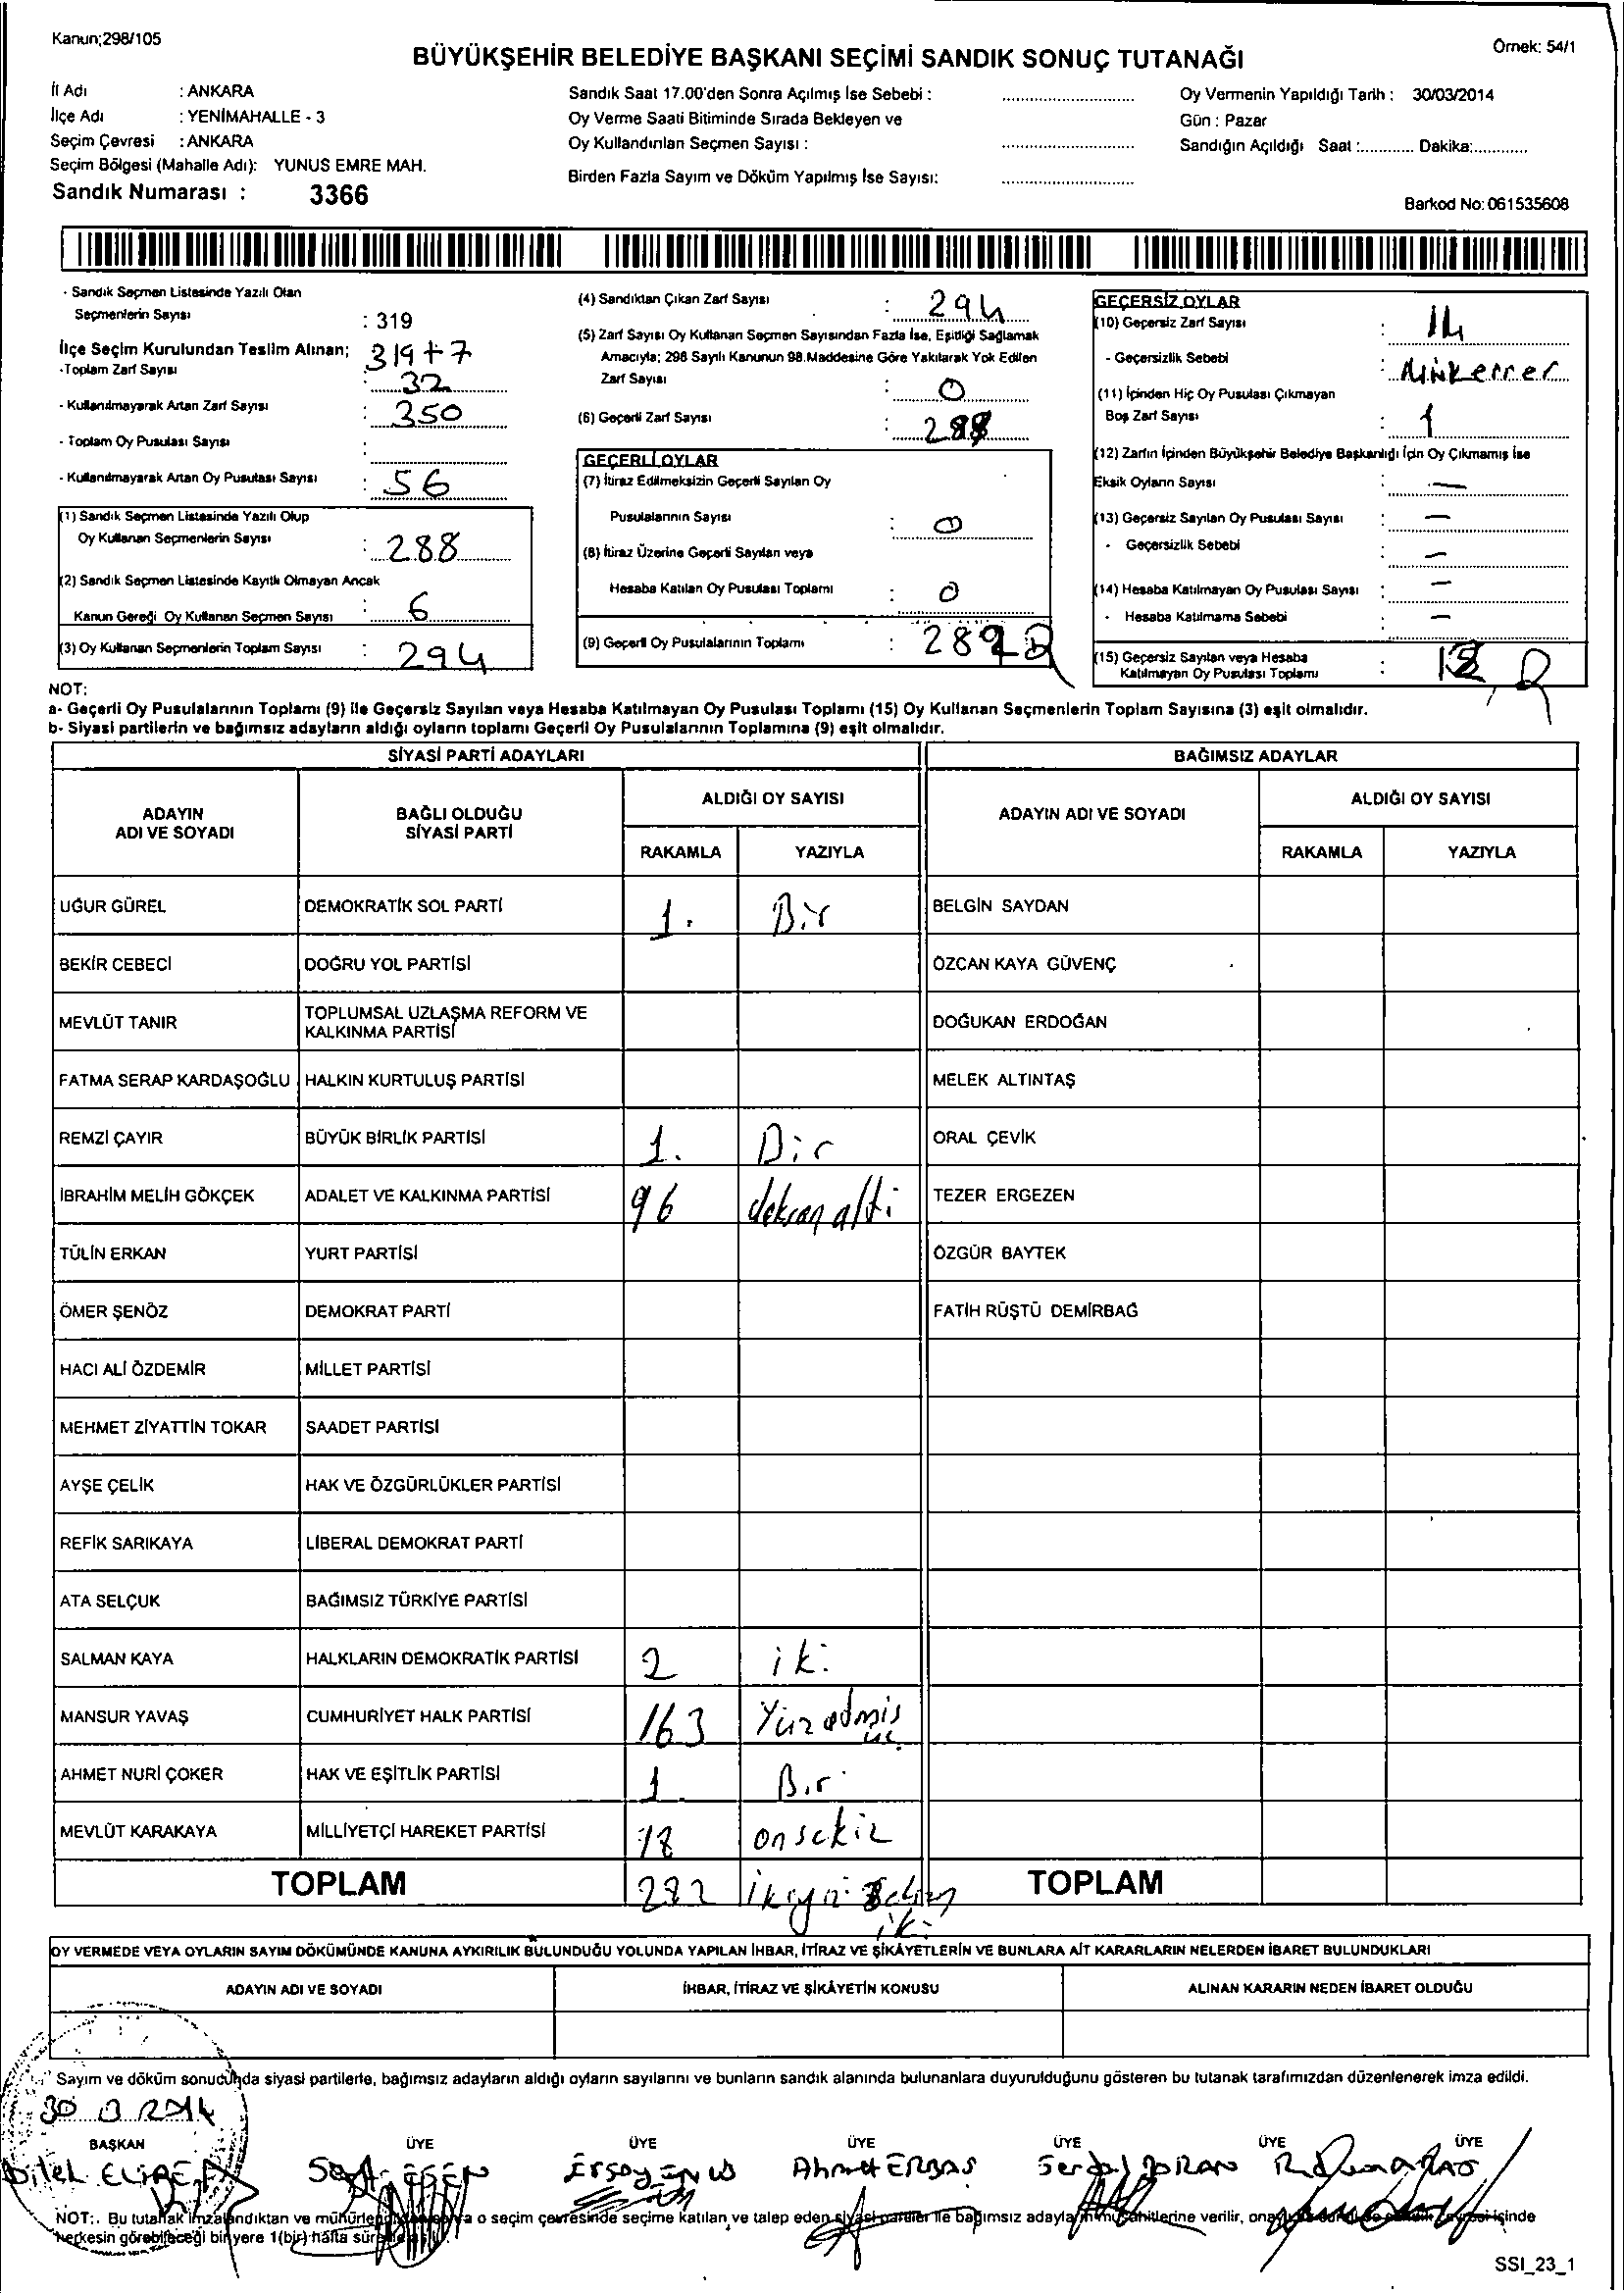 Kanun;298/105
Örnek: 54/1
BÜYÜKŞEHİR BELEDİYE BAŞKANI SEÇİMİ SANDIK SONUÇ TUTANAĞI
İl Adı : ANKARA
İlçe Adı : YENİMAHALLE - 3
Seçim Çevresi : ANKARA
Seçim Bölgesi (Mahalle Adı): YUNUS EMRE MAH.
Sandık Numarası : 3366
Sandık Saat 17.00'den Sonra Açılmış İse Sebebi :
Oy Verme Saati Bitiminde Sırada Bekleyen ve
Oy Kullandırılan Seçmen Sayısı :
Birden Fazla Sayım ve Döküm Yapılmış İse Sayısı:
Oy Vermenin Yapıldığı Tarih : 30/03/2014
Gün : Pazar
Sandığın Açıldığı Saat :............ Dakika:............
Barkod No: 061535608
- Sandık Seçmen Listesinde Yazılı Olan
Seçmenlerin Sayısı : 319
İlçe Seçim Kurulundan Teslim Alınan; 319+7
-Toplam Zarf Sayısı : 32
- Kullanılmayarak Artan Zarf Sayısı : 350
- Toplam Oy Pusulası Sayısı :
- Kullanılmayarak Artan Oy Pusulası Sayısı : 56
(1) Sandık Seçmen Listesinde Yazılı Olup
Oy Kullanan Seçmenlerin Sayısı : 288
(2) Sandık Seçmen Listesinde Kayıtlı Olmayan Ancak
Kanun Gereği Oy Kullanan Seçmen Sayısı : 6
(3) Oy Kullanan Seçmenlerin Toplam Sayısı : 294
(4) Sandıktan Çıkan Zarf Sayısı : 294
(5) Zarf Sayısı Oy Kullanan Seçmen Sayısından Fazla İse, Eşitliği Sağlamak
Amacıyla; 298 Sayılı Kanunun 98.Maddesine Göre Yakılarak Yok Edilen
Zarf Sayısı : 0
(6) Geçerli Zarf Sayısı : 288
GEÇERLİ OYLAR
(7) İtiraz Edilmeksizin Geçerli Sayılan Oy
Pusulalarının Sayısı : 0
(8) İtiraz Üzerine Geçerli Sayılan veya
Hesaba Katılan Oy Pusulası Toplamı : 0
(9) Geçerli Oy Pusulalarının Toplamı : 282
GEÇERSİZ OYLAR
(10) Geçersiz Zarf Sayısı : 14
- Geçersizlik Sebebi : Mükerrer
(11) İçinden Hiç Oy Pusulası Çıkmayan
Boş Zarf Sayısı : 1
(12) Zarfın İçinden Büyükşehir Belediye Başkanlığı İçin Oy Çıkmamış İse
Eksik Oyların Sayısı : —
(13) Geçersiz Sayılan Oy Pusulası Sayısı : —
- Geçersizlik Sebebi : —
(14) Hesaba Katılmayan Oy Pusulası Sayısı : —
- Hesaba Katılmama Sebebi : —
(15) Geçersiz Sayılan veya Hesaba
Katılmayan Oy Pusulası Toplamı : 12
NOT:
a- Geçerli Oy Pusulalarının Toplamı (9) ile Geçersiz Sayılan veya Hesaba Katılmayan Oy Pusulası Toplamı (15) Oy Kullanan Seçmenlerin Toplam Sayısına (3) eşit olmalıdır.
b- Siyasi partilerin ve bağımsız adayların aldığı oyların toplamı Geçerli Oy Pusulalarının Toplamına (9) eşit olmalıdır.
SİYASİ PARTİ ADAYLARI
BAĞIMSIZ ADAYLAR
ADAYIN ADI VE SOYADI
BAĞLI OLDUĞU SİYASİ PARTİ
ALDIĞI OY SAYISI
RAKAMLA YAZIYLA
ADAYIN ADI VE SOYADI
ALDIĞI OY SAYISI
RAKAMLA YAZIYLA
UĞUR GÜREL DEMOKRATİK SOL PARTİ 1. Bir BELGİN SAYDAN
BEKİR CEBECİ DOĞRU YOL PARTİSİ ÖZCAN KAYA GÜVENÇ
MEVLÜT TANIR TOPLUMSAL UZLAŞMA REFORM VE KALKINMA PARTİSİ DOĞUKAN ERDOĞAN
FATMA SERAP KARDAŞOĞLU HALKIN KURTULUŞ PARTİSİ MELEK ALTINTAŞ
REMZİ ÇAYIR BÜYÜK BİRLİK PARTİSİ 1. Bir ORAL ÇEVİK
İBRAHİM MELİH GÖKÇEK ADALET VE KALKINMA PARTİSİ 96 doksan altı TEZER ERGEZEN
TÜLİN ERKAN YURT PARTİSİ ÖZGÜR BAYTEK
ÖMER ŞENÖZ DEMOKRAT PARTİ FATİH RÜŞTÜ DEMİRBAĞ
HACI ALİ ÖZDEMİR MİLLET PARTİSİ
MEHMET ZİYATTİN TOKAR SAADET PARTİSİ
AYŞE ÇELİK HAK VE ÖZGÜRLÜKLER PARTİSİ
REFİK SARIKAYA LİBERAL DEMOKRAT PARTİ
ATA SELÇUK BAĞIMSIZ TÜRKİYE PARTİSİ
SALMAN KAYA HALKLARIN DEMOKRATİK PARTİSİ 2 iki
MANSUR YAVAŞ CUMHURİYET HALK PARTİSİ 163 Yüz atmış üç
AHMET NURİ ÇOKER HAK VE EŞİTLİK PARTİSİ 1 Bir
MEVLÜT KARAKAYA MİLLİYETÇİ HAREKET PARTİSİ 18 onsekiz
TOPLAM 282 TOPLAM
OY VERMEDE VEYA OYLARIN SAYIM DÖKÜMÜNDE KANUNA AYKIRILIK BULUNDUĞU YOLUNDA YAPILAN İHBAR, İTİRAZ VE ŞİKÂYETLERİN VE BUNLARA AİT KARARLARIN NELERDEN İBARET BULUNDUKLARI
ADAYIN ADI VE SOYADI İHBAR, İTİRAZ VE ŞİKÂYETİN KONUSU ALINAN KARARIN NEDEN İBARET OLDUĞU
Sayım ve döküm sonucunda siyasi partilerle, bağımsız adayların aldığı oyların sayılarını ve bunların sandık alanında bulunanlara duyurulduğunu gösteren bu tutanak tarafımızdan düzenlenerek imza edildi.
30 3 2014
BAŞKAN ÜYE ÜYE ÜYE ÜYE ÜYE ÜYE
Dilek Ersoy Ahmet ERBAŞ
NOT:. Bu tutanak imzalandıktan ve o seçim çevresinde seçime katılan ve talep eden siyasi partiler ile bağımsız adayların müşahitlerine verilir, içinde
herkesin görebileceği bir yere 1(bir) hafta
SSI_23_1